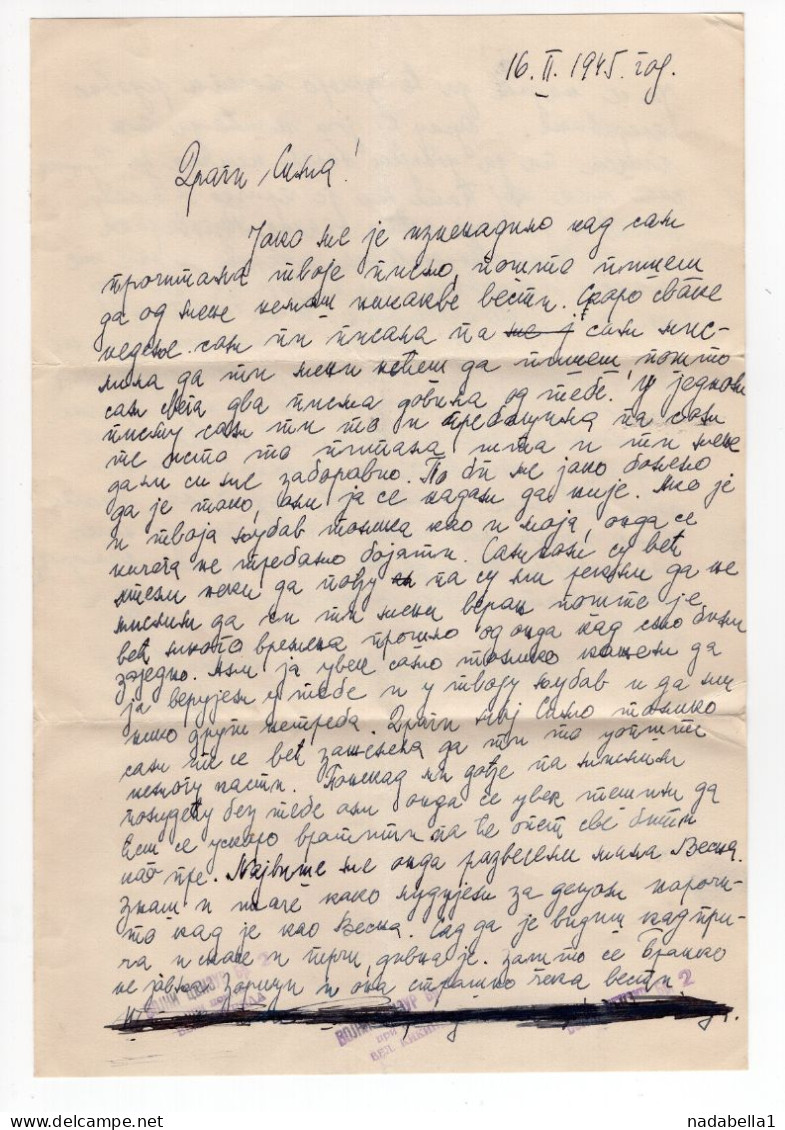 16. II. 1945. год.
Драги Сима!
Јако ме је изненадило кад сам
прочитала твоје писмо, пошто пишеш
да од мене немаш никакве вести. Скоро сваке
недеље сам ти писала па ме ј сам мис-
лила да ти мени нећеш да пишеш, пошто
сам свега два писма добила од тебе. У једном
писму сам ти то и пребацила па сам
те исто то питала шта и ти мене
дали си ме заборавио. То би ме јако болело
да је тако, али ја се надам да није. Ако је
и твоја љубав толика као и моја, онда се
ничега не требамо бојати. Са су већ
хтели неки да пођу па су ми рекли да не
мислим да си ти мени веран пошто је
већ много времена прошло од онда кад смо били
заједно. Али ја увек само толико кажем да
ја верујем у тебе и у твоју љубав и да ми
нико други нетреба. Драги мој Симо толико
сам те се већ зажелела да ти то уопште
немогу касти. Понекад ми дође па мислим
полудећу без тебе али онда се увек тешим да
ћеш се ускоро вратити па ће опет све бити
као пре. Највише ме онда развесели мила Весна.
знаш и иначе како лудујем за децом нарочи-
то кад је као Весна. Сад да је видиш кад при-
ча и иначе и трчи, дивна је. Зашто се Бранко
не јавља Зорици и она страшно чека вести
ВОЈНИ ЦЕНЗУР БР. 2
при
ВОЈНИ ЦЕНЗУР БР.
при
ВЕЛ. КИКИНДА
2
nadabella1